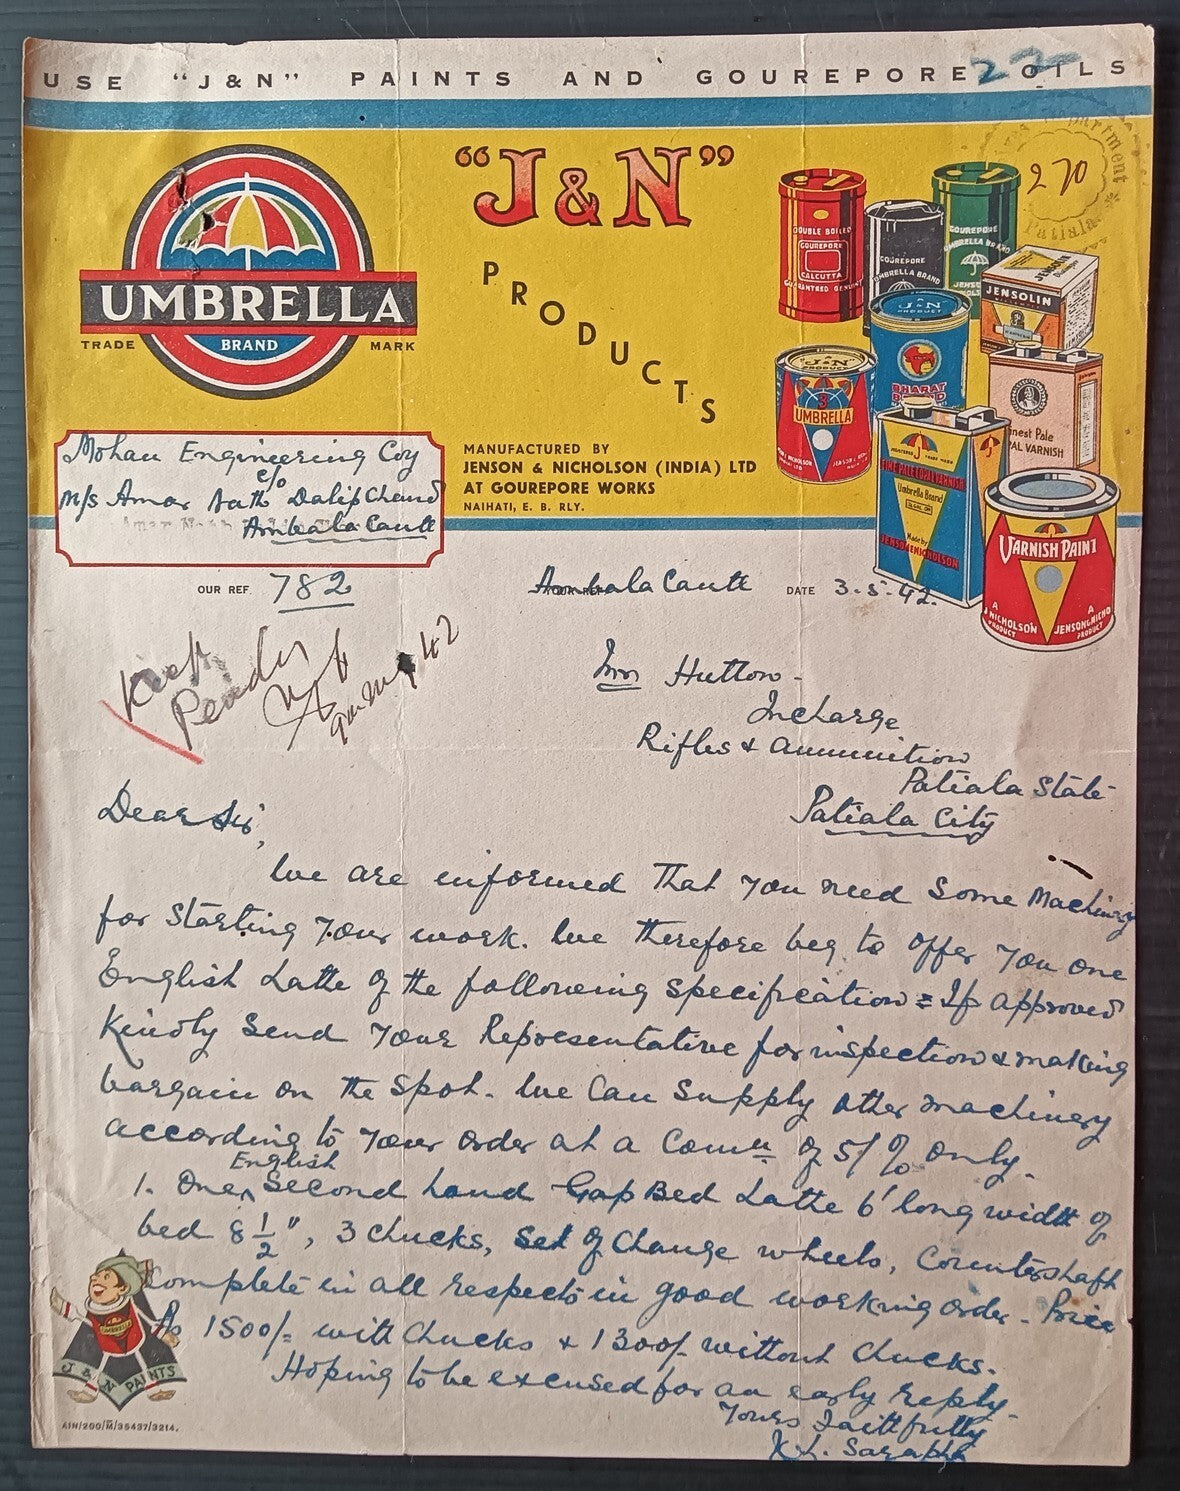 USE "J&N" PAINTS AND GOUREPORE OILS
22
"J&N"
PRODUCTS
UMBRELLA
TRADE BRAND MARK
Department
270
Patiala
DOUBLE BOILED
GOUREPORE
CALCUTTA
GUARANTEED GENUINE
GOUREPORE
UMBRELLA BRAND
GOUREPORE
UMBRELLA BRAND
JENSOLIN
J&N
PRODUCT
BHARAT
"J&N"
PRODUCT
UMBRELLA
Finest Pale
COPAL VARNISH
FINE PALE COPAL VARNISH
Umbrella Brand
Made by
JENSON & NICHOLSON
VARNISH PAINT
A
NICHOLSON
PRODUCT
A
JENSON & NICHO
PRODUCT
MANUFACTURED BY
JENSON & NICHOLSON (INDIA) LTD
AT GOUREPORE WORKS
NAIHATI, E. B. RLY.
Mohan Engineering Coy
c/o
M/s Amar Nath Dalip Chand
Ambala Cantt
OUR REF 782
Ambala Cantt DATE 3-5-42.
Keep
Pending
Hutton -
Incharge
Rifles & Ammunition
Patiala State
Patiala City
Dear Sir,
We are informed that you need some machinery
for starting your work. We therefore beg to offer you one
English Lathe of the following specification = If approved
Kindly send your Representative for inspection & making
bargain on the spot. We can supply other machinery
according to your order at a Comn of 5/% only.
1. One English second hand Gap Bed Lathe 6' long width of
bed 8 1/2", 3 chucks, set of change wheels, Countershaft
complete in all respects in good working order - Price
Rs 1500/= with chucks & 1300/- without chucks.
Hoping to be excused for an early reply.
Yours Faithfully
UMBRELLA
J & N PAINTS
AIN/200/M/35437/3214.